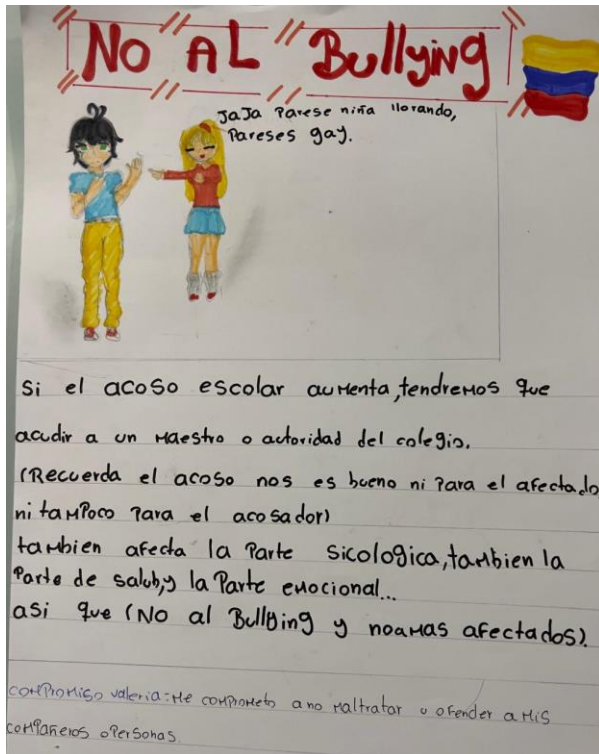 No AL Bullying
JaJa Parese niña llorando,
Pareses gay.
Si el acoso escolar aumenta, tendremos que
acudir a un maestro o autoridad del colegio.
(Recuerda el acoso nos es bueno ni Para el afectado
ni tamPoco Para el acosador)
tambien afecta la Parte sicologica, tambien la
Parte de salub, y la Parte emocional...
asi que (No al Bullying y noamas afectados).
comPromiso valeria: Me comPrometo a no maltratar u ofender a mis
comPañeros o Personas.